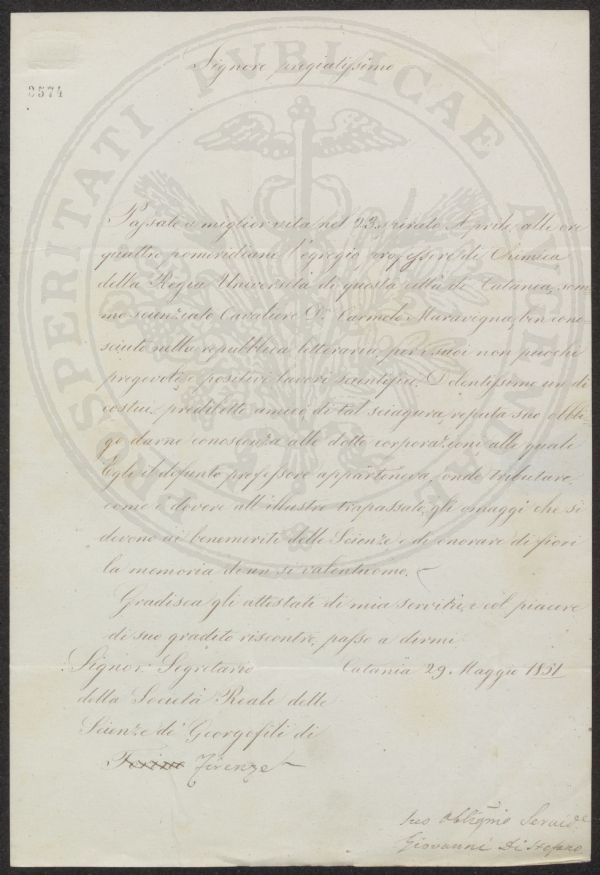 Signore pregiatissimo
2574
PROSPERITATI PVBLICAE AVGENDAE
Passato a miglior vita nel 23 spirato Aprile, alle ore
quattro pomeridiane l'egregio professore di Chimica
della Regia Università di questa città di Catania, som=
mo scienziato Cavaliere Dr. Carmelo Maravegna, ben cono=
sciuto nella repubblica letteraria, per i suoi non puochi
pregevoli, e positivi lavori scientifici. Dolentissimo un dì
costui prediletto amico di tal sciagura, reputa suo obbli=
go darne conoscienza alle dotte corporazioni, alle quali
Egli il defunto professore apparteneva, onde tributare,
come è dovere all'illustre trapassato, gli omaggi che si
devono ai benemeriti delle Scienze e di onorare di fiori
la memoria di un sì valentuomo.
Gradisca gli attestati di mia servitù, e col piacere
di suo gradito riscontro, passo a dirmi
Signor Segretario Catania 29. Maggio 1851
della Società Reale delle
Scienze di Georgofili di
Firenze
Suo Obblig.mo Servid.e
Giovanni Di Stefano